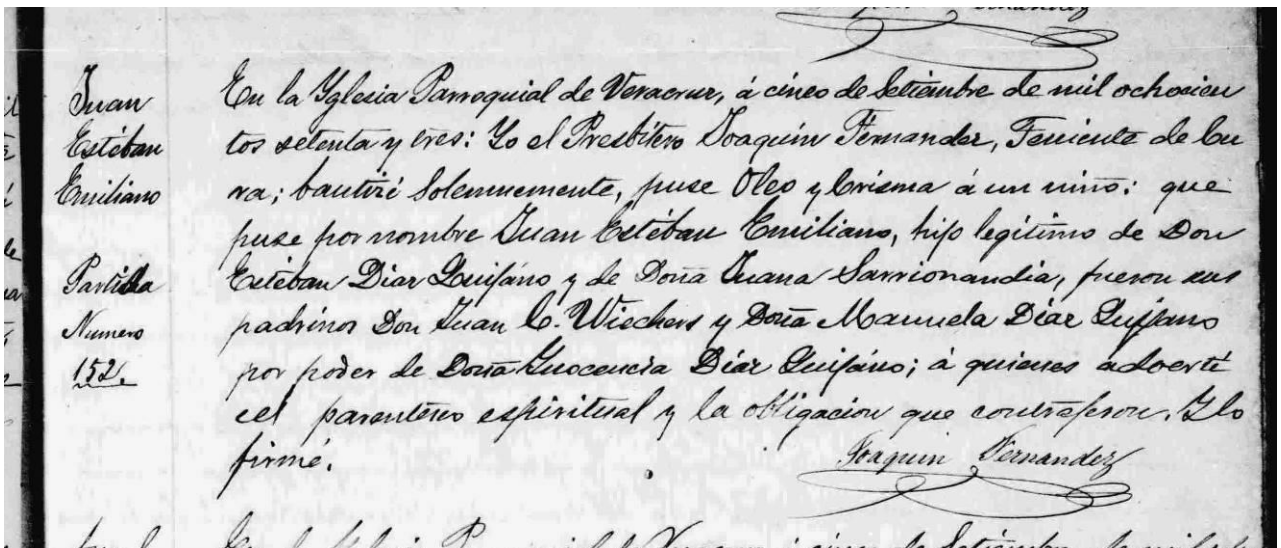 Juan
Estéban
Emiliano
Partida
Numero
152.
En la Yglesia Parroquial de Veracruz, á cinco de Setiembre de mil ochocien
tos setenta y tres: Yo el Presbitero Joaquin Fernandez, Teniente de Cu
ra; bautizé Solemnemente, puse Oleo y Crisma á un niño: que
puse por nombre Juan Estéban Emiliano, hijo legitimo de Don
Estéban Diaz Quijano y de Doña Juana Sarrionandia, fueron sus
padrinos Don Juan C. Wiechers y Doña Manuela Diaz Quijano
por poder de Doña Ynocencia Diaz Quijano; á quienes adverti
el parentesco espiritual y la obligacion que contrajeron. Y lo
firmé.
Joaquin Fernandez